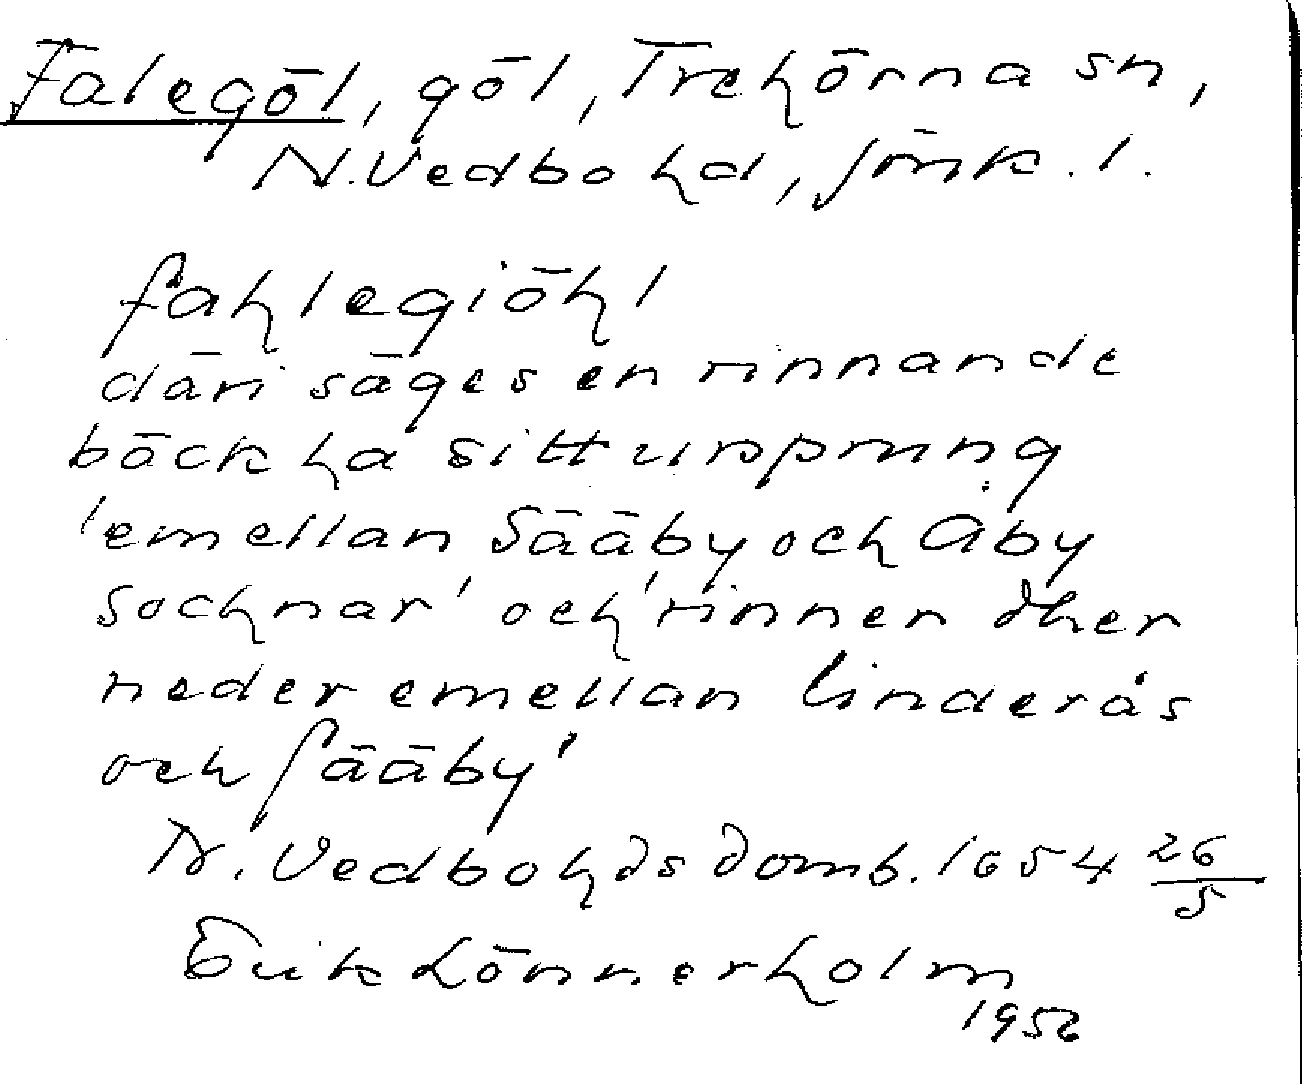 Falegöl, göl, Trehörna sn,
N. Vedbo hd, Jönk. l.
fahlegiöhl
däri säges en rinnande
bäck ha sitt ursprung
'emellan Sääby och Åby
sochnar' och 'rinner dher
neder emellan Linderås
och Sääby'
N. Vedbo hds domb. 1654 26/5
Erik Lönnerholm
1956